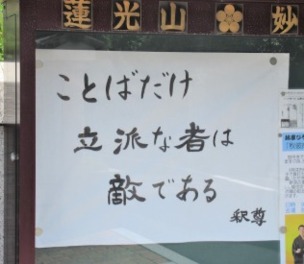 蓮光山 妙
ことばだけ
立派な者は
敵である
釈尊